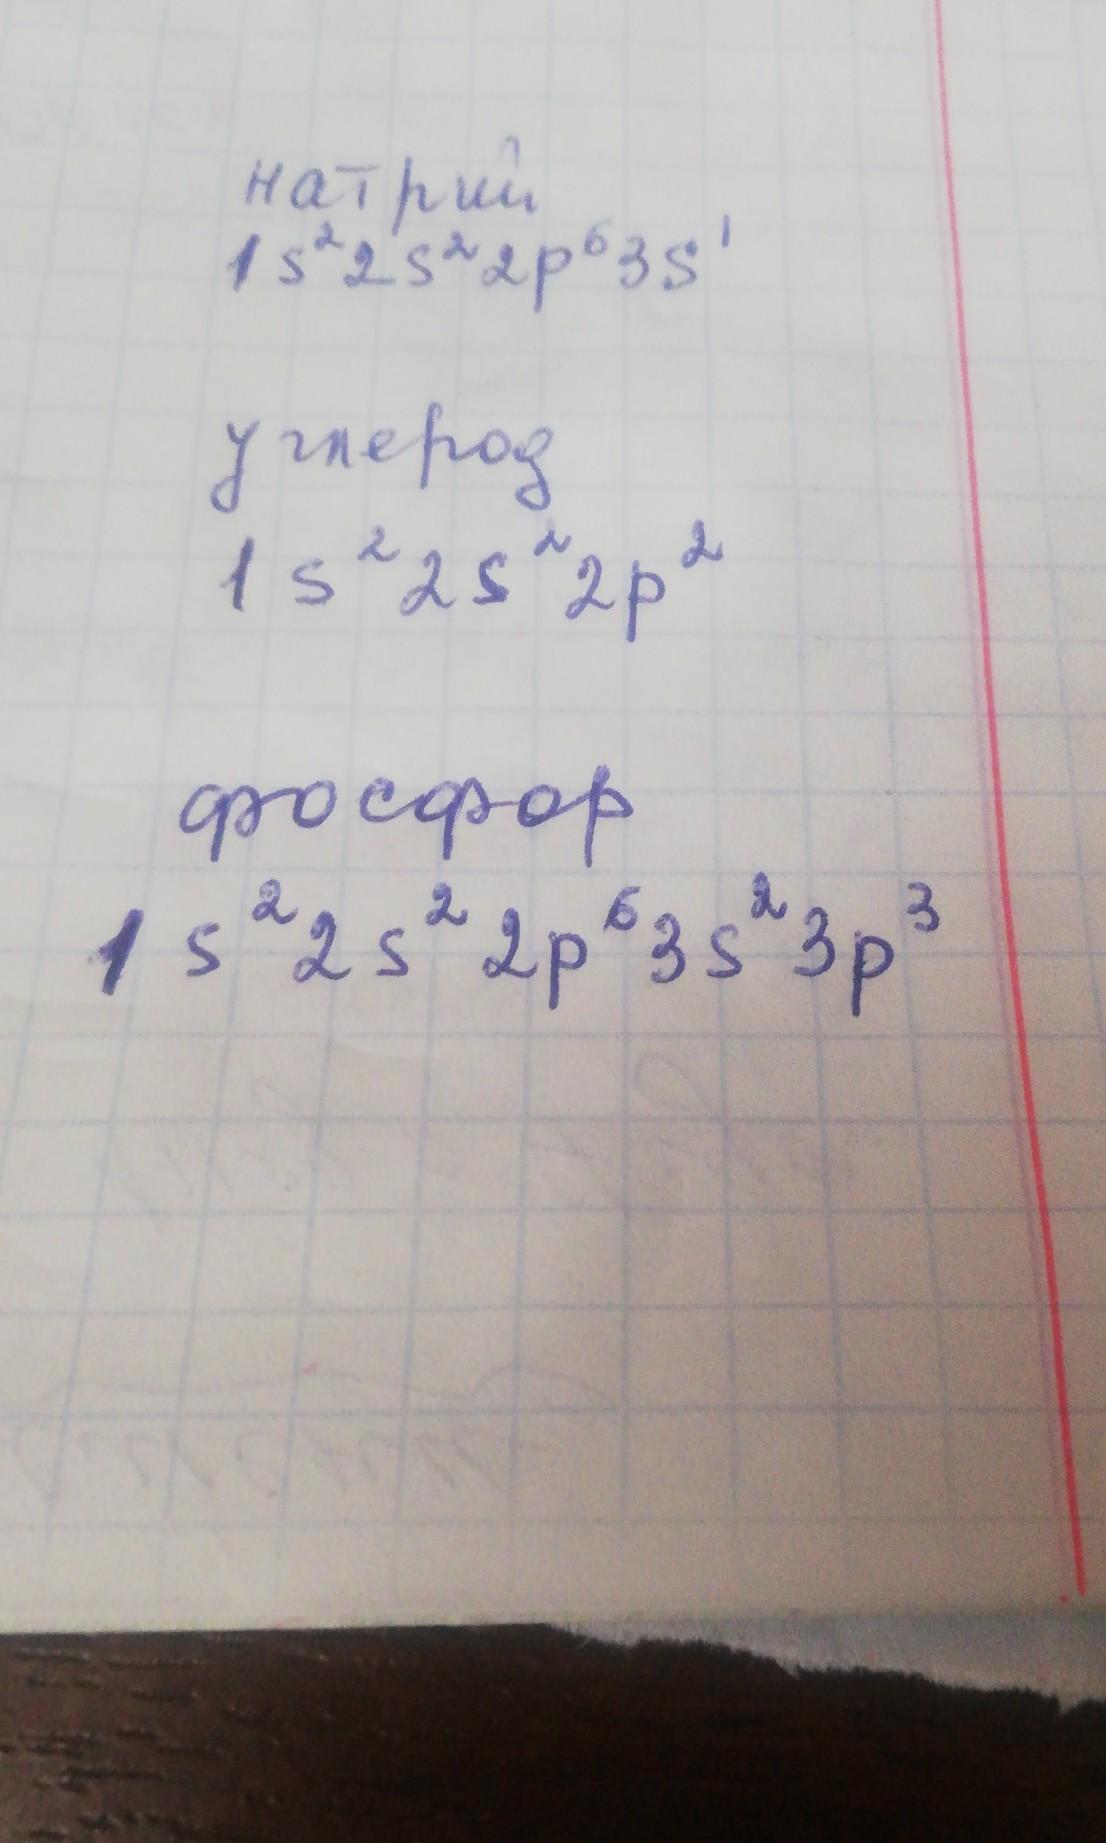 натрий
1s²2s²2p⁶3s¹
углерод
1s²2s²2p²
фосфор
1s²2s²2p⁶3s²3p³